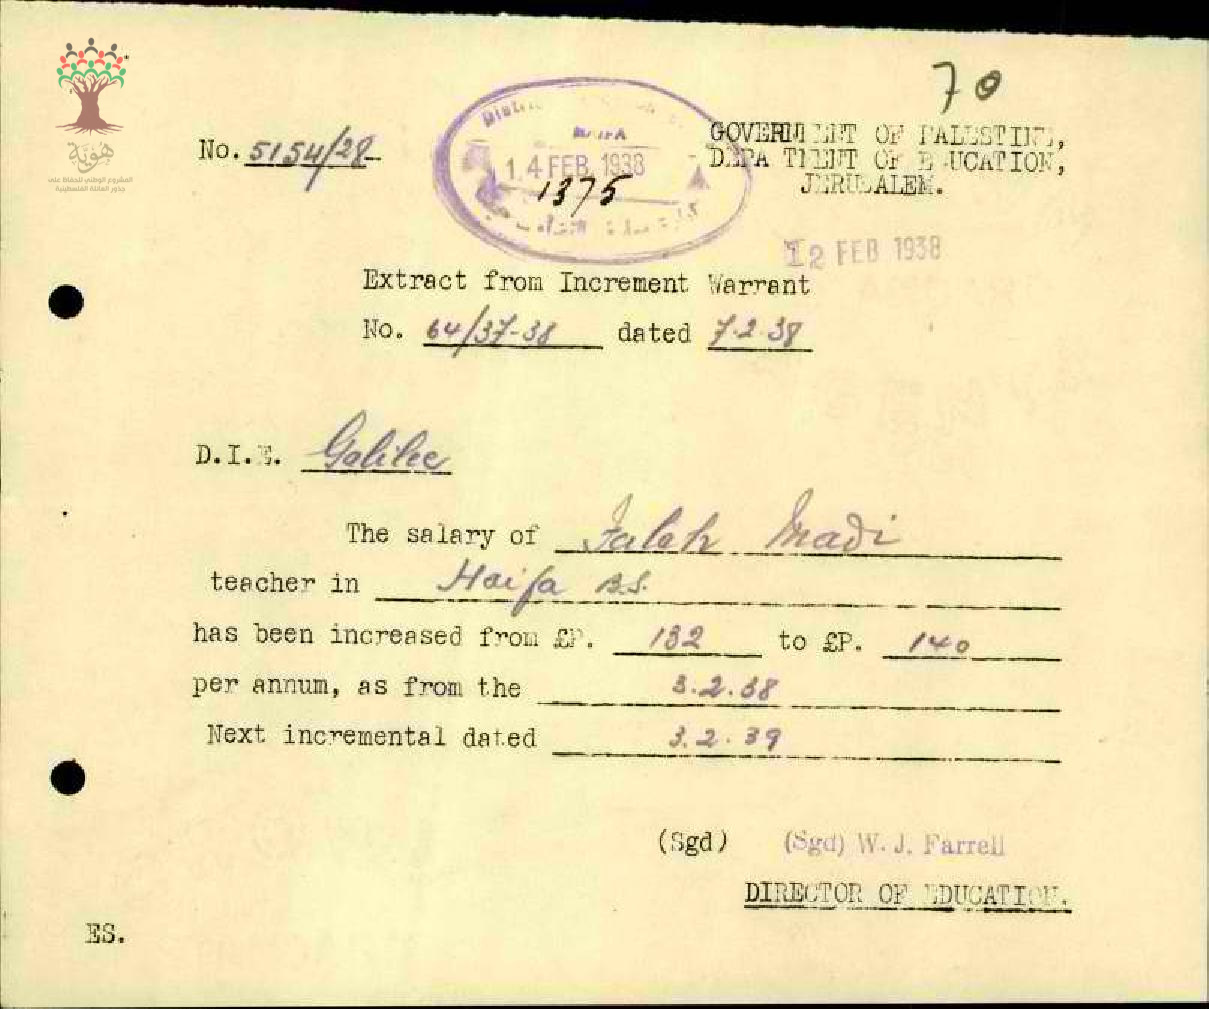 70
هوية
المشروع الوطني للحفاظ على
جذور العائلة الفلسطينية
No. 5154/28
HAIFA
14 FEB 1938
1375
GOVERNMENT OF PALESTINE,
DEPARTMENT OF EDUCATION,
JERUSALEM.
12 FEB 1938
Extract from Increment Warrant
No. 64/37-38 dated 7.2.38
D.I.E. Galilee
The salary of Falah Madi
teacher in Haifa B.S.
has been increased from £P. 132 to £P. 140
per annum, as from the 3.2.38
Next incremental dated 3.2.39
(Sgd) (Sgd) W. J. Farrell
DIRECTOR OF EDUCATION.
ES.